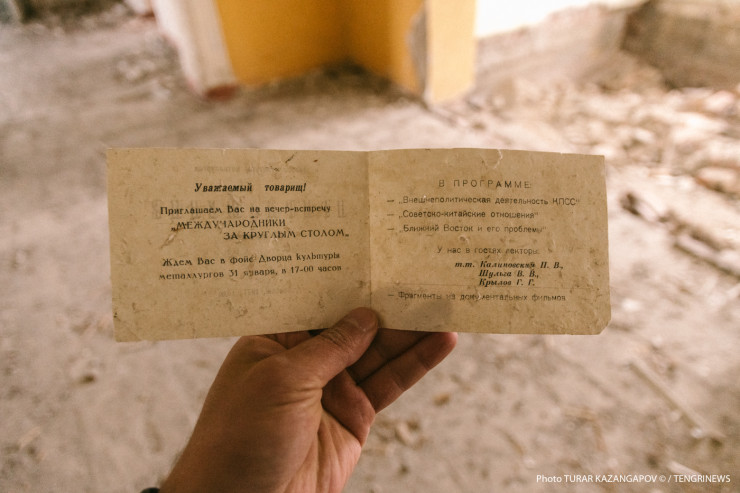 Уважаемый товарищ!
Приглашаем Вас на вечер-встречу
„МЕЖДУНАРОДНИКИ
ЗА КРУГЛЫМ СТОЛОМ„
Ждем Вас в фойе Дворца культуры
металлургов 31 января, в 17-00 часов
В ПРОГРАММЕ:
— „Внешнеполитическая деятельность КПСС"
— „Советско-китайские отношения"
— „Ближний Восток и его проблемы"
У нас в гостях лекторы:
т.т. Калиновский П. В.,
Шульга В. В.,
Крылов Г. Г.
— Фрагменты из документальных фильмов
Photo TURAR KAZANGAPOV © / TENGRINEWS